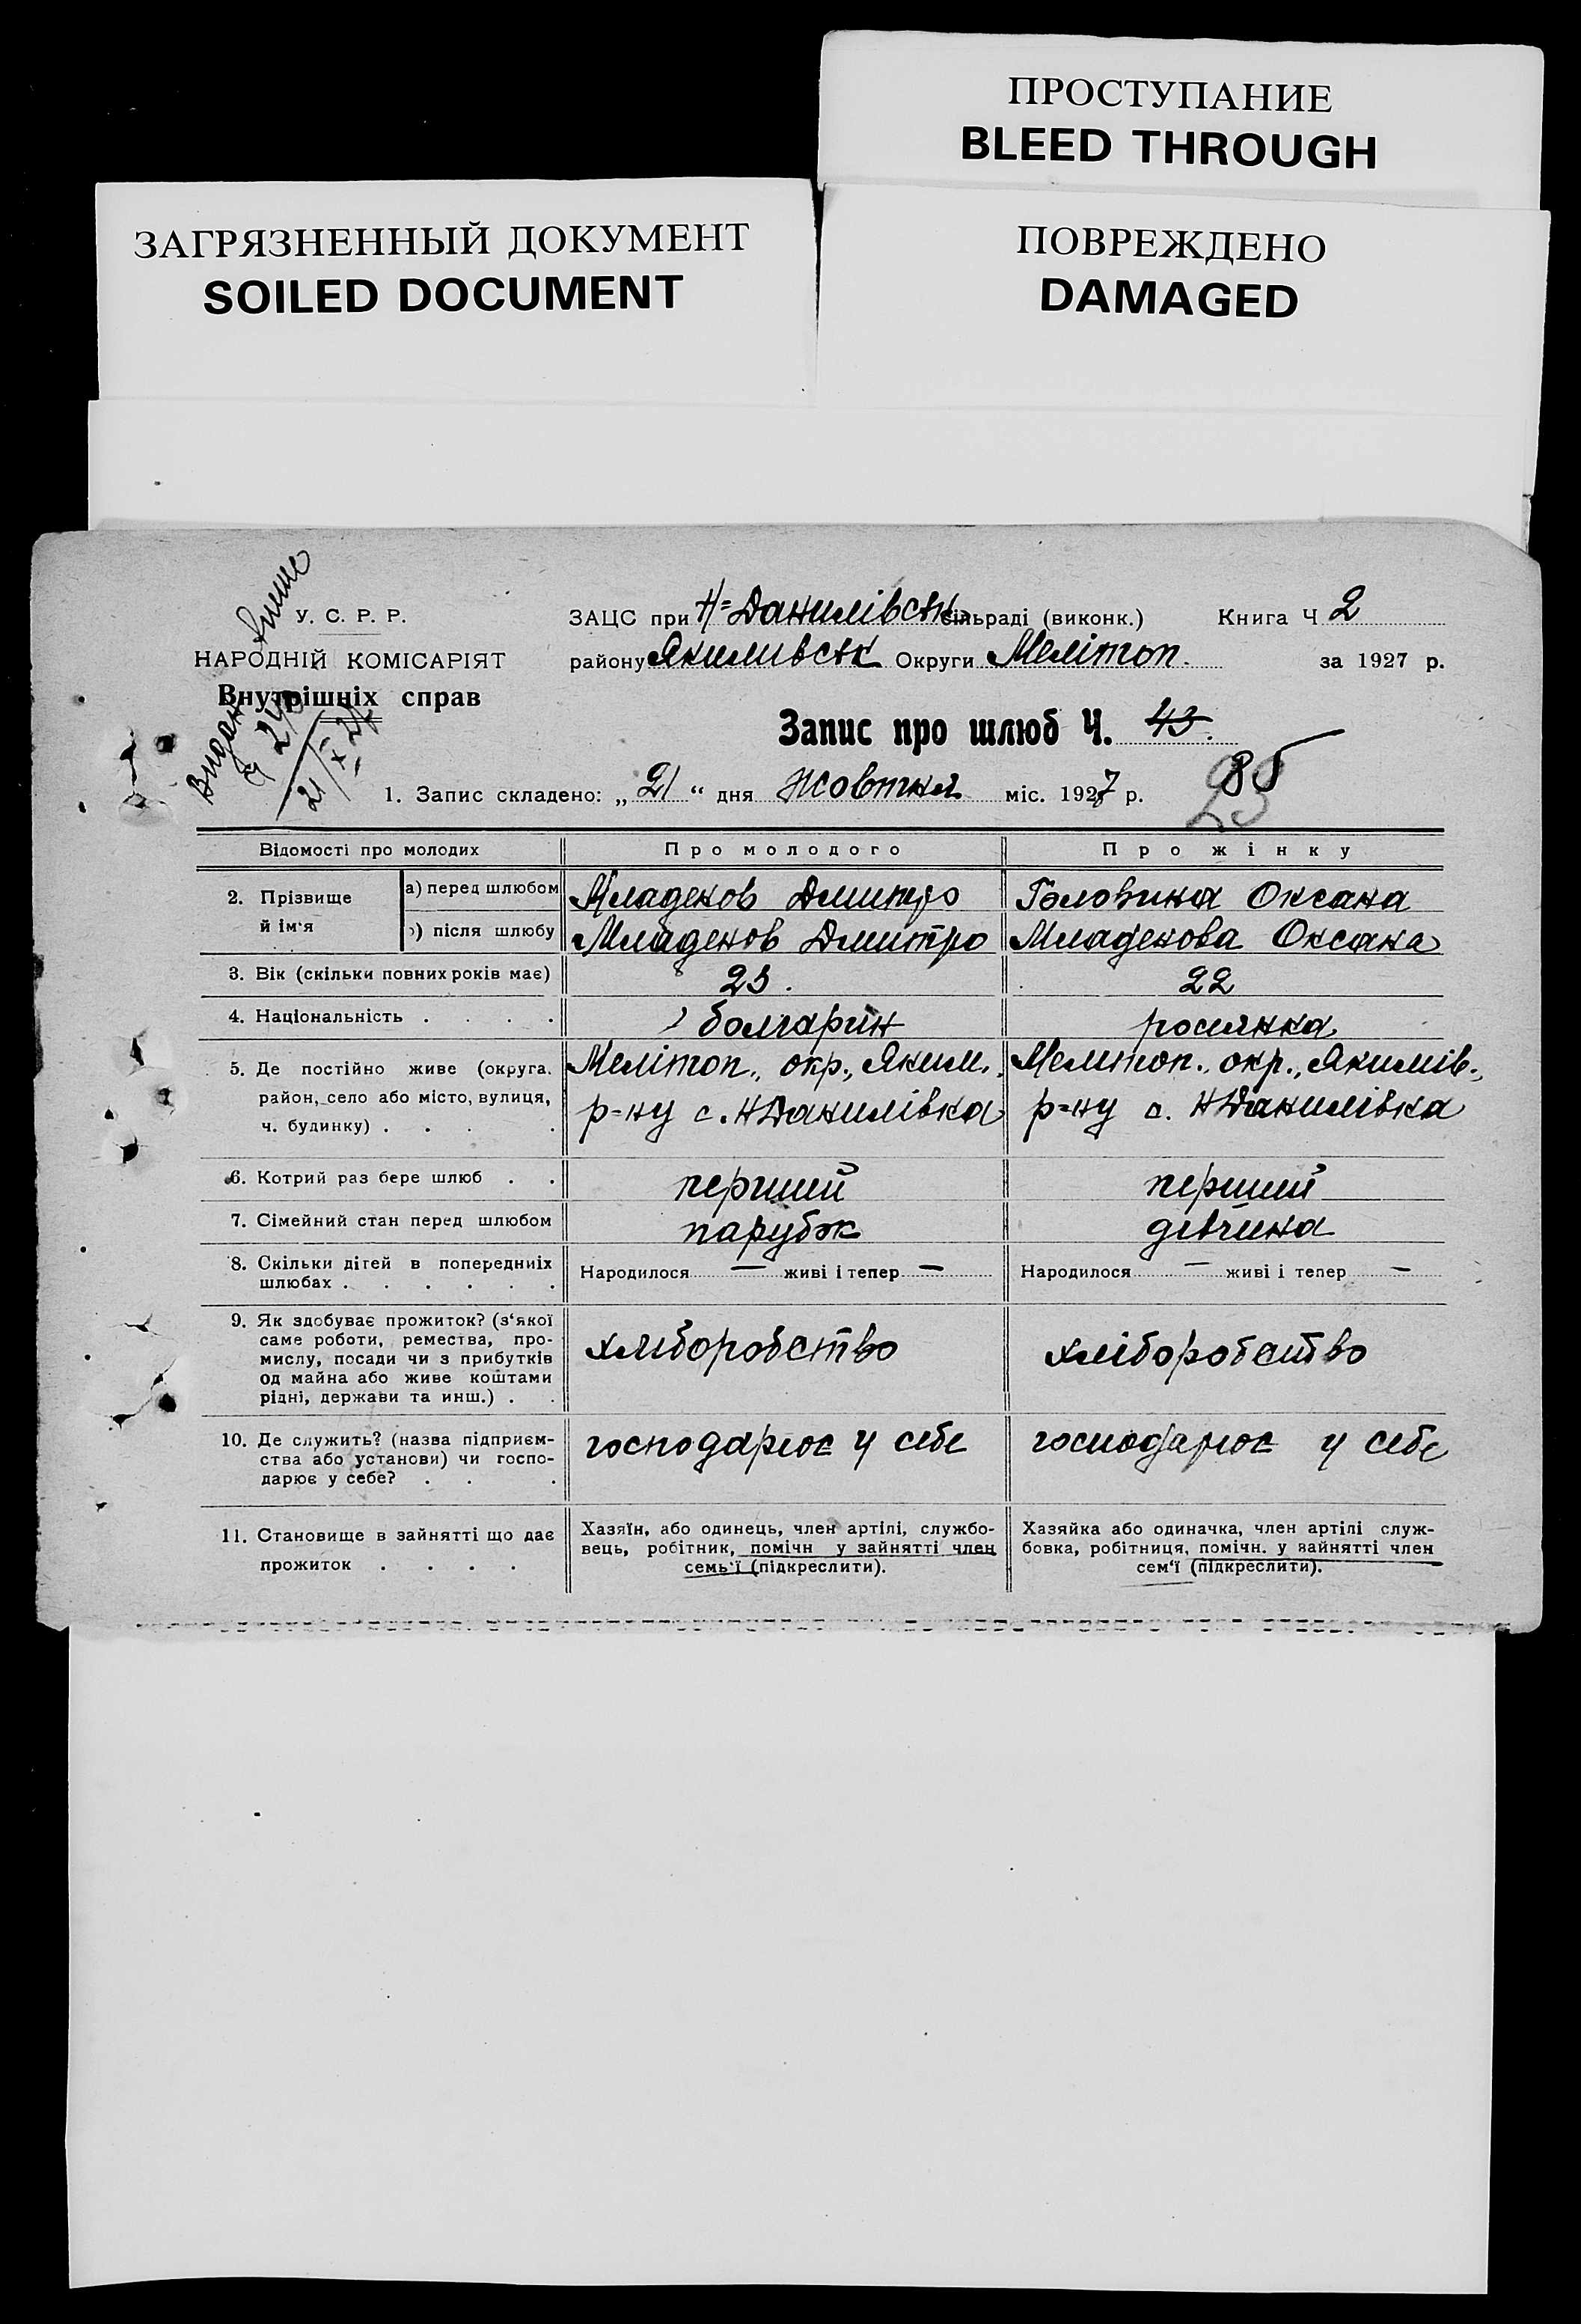 ПРОСТУПАНИЕ
BLEED THROUGH
ЗАГРЯЗНЕННЫЙ ДОКУМЕНТ
SOILED DOCUMENT
ПОВРЕЖДЕНО
DAMAGED
У. С. Р. Р.
НАРОДНІЙ КОМІСАРІЯТ
Внутрішніх справ
Видан
21/X 27
ЗАЦС при Н=Данилівськ. сільраді (виконк.) Книга Ч 2
району Якимивськ Округи Мелітоп. за 1927 р.
Запис про шлюб Ч. 43.
85
23
1. Запис складено: „21“ дня Жовтня міс. 1927 р.
Відомості про молодих Про молодого Про жінку
2. Прізвище й ім'я а) перед шлюбом Младенов Дмитро Головина Оксана
б) після шлюбу Младенов Дмитро Младенова Оксана
3. Вік (скільки повних років має) 23. 22
4. Національність . . . . болгарин росиянка
5. Де постійно живе (округа, Мелітоп., окр., Яким., Мелитоп., окр., Якимів.,
район, село або місто, вулиця, р=ну с. Н Данилівка р=ну с. Н Данилівка
ч. будинку) . . . .
6. Котрий раз бере шлюб . . перший перший
7. Сімейний стан перед шлюбом парубок дівчина
8. Скільки дітей в попередниіх Народилося — живі і тепер — Народилося — живі і тепер —
шлюбах . . . . . .
9. Як здобуває прожиток? (з'якої
саме роботи, ремества, про-
мислу, посади чи з прибутків хліборобство хліборобство
од майна або живе коштами
рідні, держави та инш.) . .
10. Де служить? (назва підприєм- господарює у себе господарює у себе
ства або установи) чи госпо-
дарює у себе? . . .
11. Становище в зайнятті що дає Хазяїн, або одинець, член артілі, службо- Хазяйка або одиначка, член артілі служ-
вець, робітник, помічн у зайнятті член бовка, робітниця, помічн. у зайнятті член
прожиток . . . . семь'ї (підкреслити). сем'ї (підкреслити).